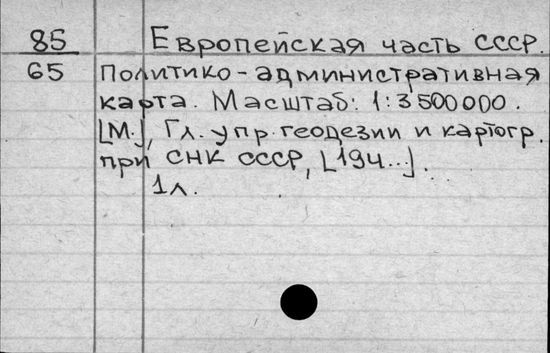 85 Европейская часть СССР.
65 Политико-административная
карта. Масштаб: 1:3500000.
[М.], Гл. упр. геодезии и картогр.
при СНК СССР, [194...].
1л.